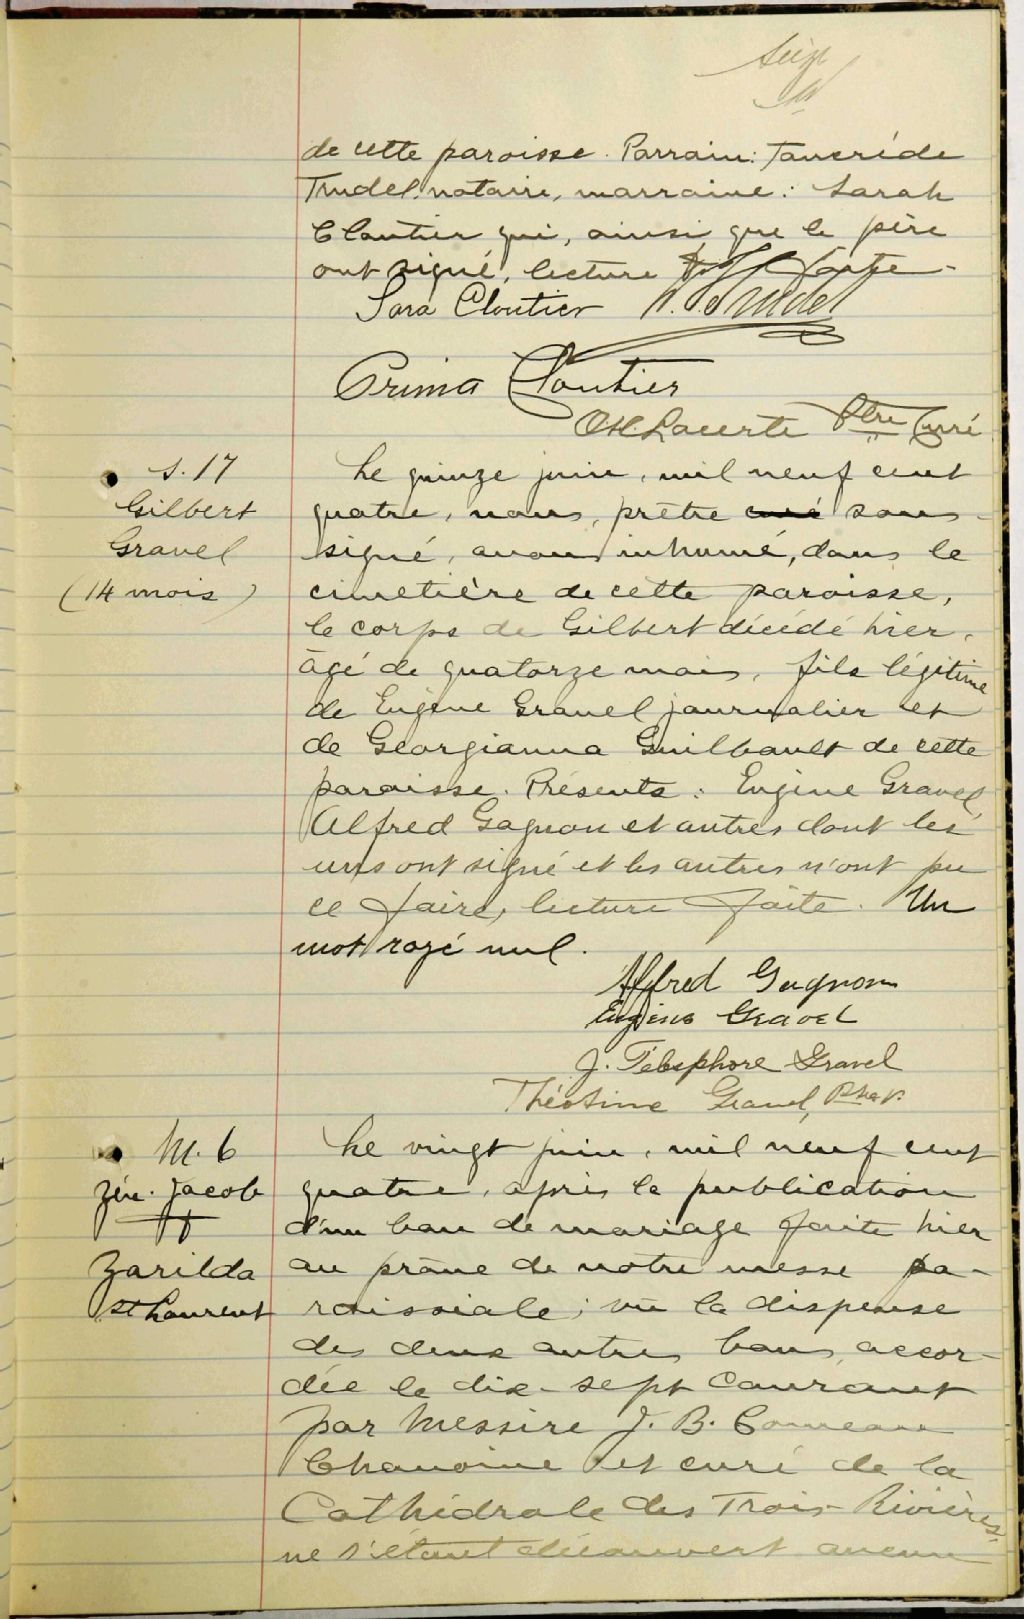 Seize
de cette paroisse. Parrain: Tancréde
Trudel, notaire, marraine: Sarah
Cloutier qui, ainsi que le père
ont signé, lecture faite.
Sara Cloutier Trudel
Prima Cloutier
O.H. Lacerte Ptre Curé
S. 17
Gilbert
Gravel
(14 mois)
Le quinze juin, mil neuf cent
quatre, nous, prêtre curé sous-
signé, avons inhumé, dans le
cimetière de cette paroisse,
le corps de Gilbert décédé hier,
âgé de quatorze mois, fils légitime
de Eugène Gravel journalier et
de Georgianna Guilbault de cette
paroisse. Présents: Eugène Gravel,
Alfred Gagnon et autres dont les
uns ont signé et les autres n'ont pu
ce faire, lecture faite. Un
mot rayé nul.
Alfred Gagnon
Eugène Gravel
J. Télesphore Gravel
Théotime Gravel,
M. 6
Zén. Jacob
&
Zarilda
St Laurent
Le vingt juin, mil neuf cent
quatre, après la publication
d'un ban de mariage faite hier
au prône de notre messe pa-
roissiale; vu la dispense
des deux autres bans, accor-
dée le dix-sept courant
par Messire J. B. Comeau
Chanoine et curé de la
Cathédrale des Trois-Rivières,
ne s'étant découvert aucun